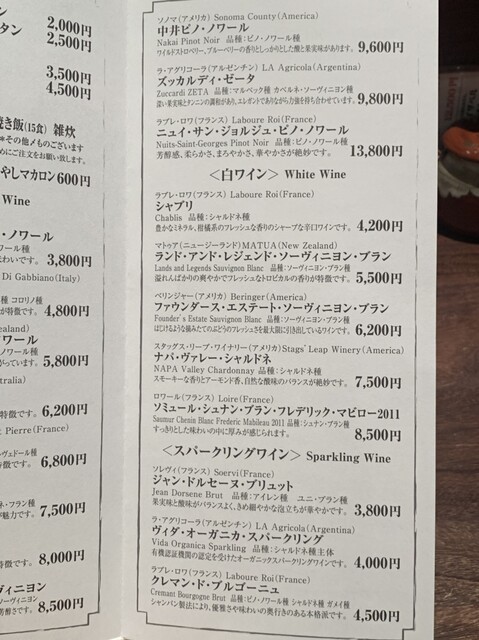 ン
2,000円
タン
2,500円
3,500円
4,500円
き飯(15食) 雑炊
その他〆ものございます
めにご注文をお願い致します。
やしマカロン 600円
Wine
・ノワール
ワール種
わいです。 3,800円
Di Gabbiano(Italy)
種 コロリノ種
が特徴です。 4,800円
ealand)
ノワール
ワール種
がっています。 5,800円
stralia)
特徴です。 6,200円
t Pierre(France)
ヴェドール種
特徴です。 6,800円
ネ・フラン種
が魅力です。 7,500円
特徴です。 8,000円
ヴィニヨン
ソーヴィニヨン種
芳醇さです。 8,500円
ソノマ(アメリカ) Sonoma County(America)
中井ピノ・ノワール
Nakai Pinot Noir 品種:ピノ・ノワール種
ワイルドストロベリー、ブルーベリーの香りとしっかりとした酸と果実味があります。 9,600円
ラ・アグリコーラ(アルゼンチン) LA Agricola(Argentina)
ズッカルディ・ゼータ
Zuccardi ZETA 品種:マルベック種 カベルネ・ソーヴィニヨン種
深い果実味とタンニンの調和があり、エレガントでありながら力強を持ち合わせています。 9,800円
ラブレ・ロワ(フランス) Laboure Roi(France)
ニュイ・サン・ジョルジュ・ピノ・ノワール
Nuits-Saint-Georges Pinot Noir 品種:ピノ・ノワール種
芳醇感、柔らかさ、まろやかさ、華やかさが絶妙です。 13,800円
<白ワイン> White Wine
ラブレ・ロワ(フランス) Laboure Roi(France)
シャブリ
Chablis 品種:シャルドネ種
豊かなミネラル、柑橘系のフレッシュな香りのシャープな辛口ワインです。 4,200円
マトゥア(ニュージーランド)MATUA(New Zealand)
ランド・アンド・レジェンド・ソーヴィニヨン・ブラン
Lands and Legends Sauvignon Blanc 品種:ソーヴィニヨン・ブラン種
溢れんばかりの爽やかでフレッシュなトロピカルの香りが特徴です。 5,500円
ベリンジャー(アメリカ) Beringer(America)
ファウンダース・エステート・ソーヴィニヨン・ブラン
Founder's Estate Sauvignon Blanc 品種:ソーヴィニヨン・ブラン種
はじけるような摘みたてのぶどうのフレッシュさを最大限に引出しているワインです。 6,200円
スタッグス・リープ・ワイナリー(アメリカ)Stags' Leap Winery(America)
ナパ・ヴァレー・シャルドネ
NAPA Valley Chardonnay 品種:シャルドネ種
スモーキーな香りとアーモンド香、自然な酸味のバランスが絶妙です。 7,500円
ロワール(フランス) Loire(France)
ソミュール・シュナン・ブラン・フレデリック・マビロー2011
Saumur Chenin Blanc Frederic Mabileau 2011 品種:シュナン・ブラン種
すっきりとした味わいの中に厚みが感じられます。 8,500円
<スパークリングワイン> Sparkling Wine
ソレヴィ(フランス) Soervi(France)
ジャン・ドルセーヌ・ブリュット
Jean Dorsene Brut 品種:アイレン種 ユニ・ブラン種
果実味と酸味がバランスよく、きめ細やかな泡立ちが華やかです。 3,800円
ラ・アグリコーラ(アルゼンチン) LA Agricola(Argentina)
ヴィダ・オーガニカ・スパークリング
Vida Organica Sparkling 品種:シャルドネ種主体
有機認証機関の認定を受けたオーガニックスパークリングワインです。 4,000円
ラブレ・ロワ(フランス) Laboure Roi(France)
クレマン・ド・ブルゴーニュ
Cremant Bourgogne Brut 品種:ピノ・ノワール種 シャルドネ種 ガメイ種
シャンパン製法により、優雅さや味わいの奥行きのある本格派です。 4,500円